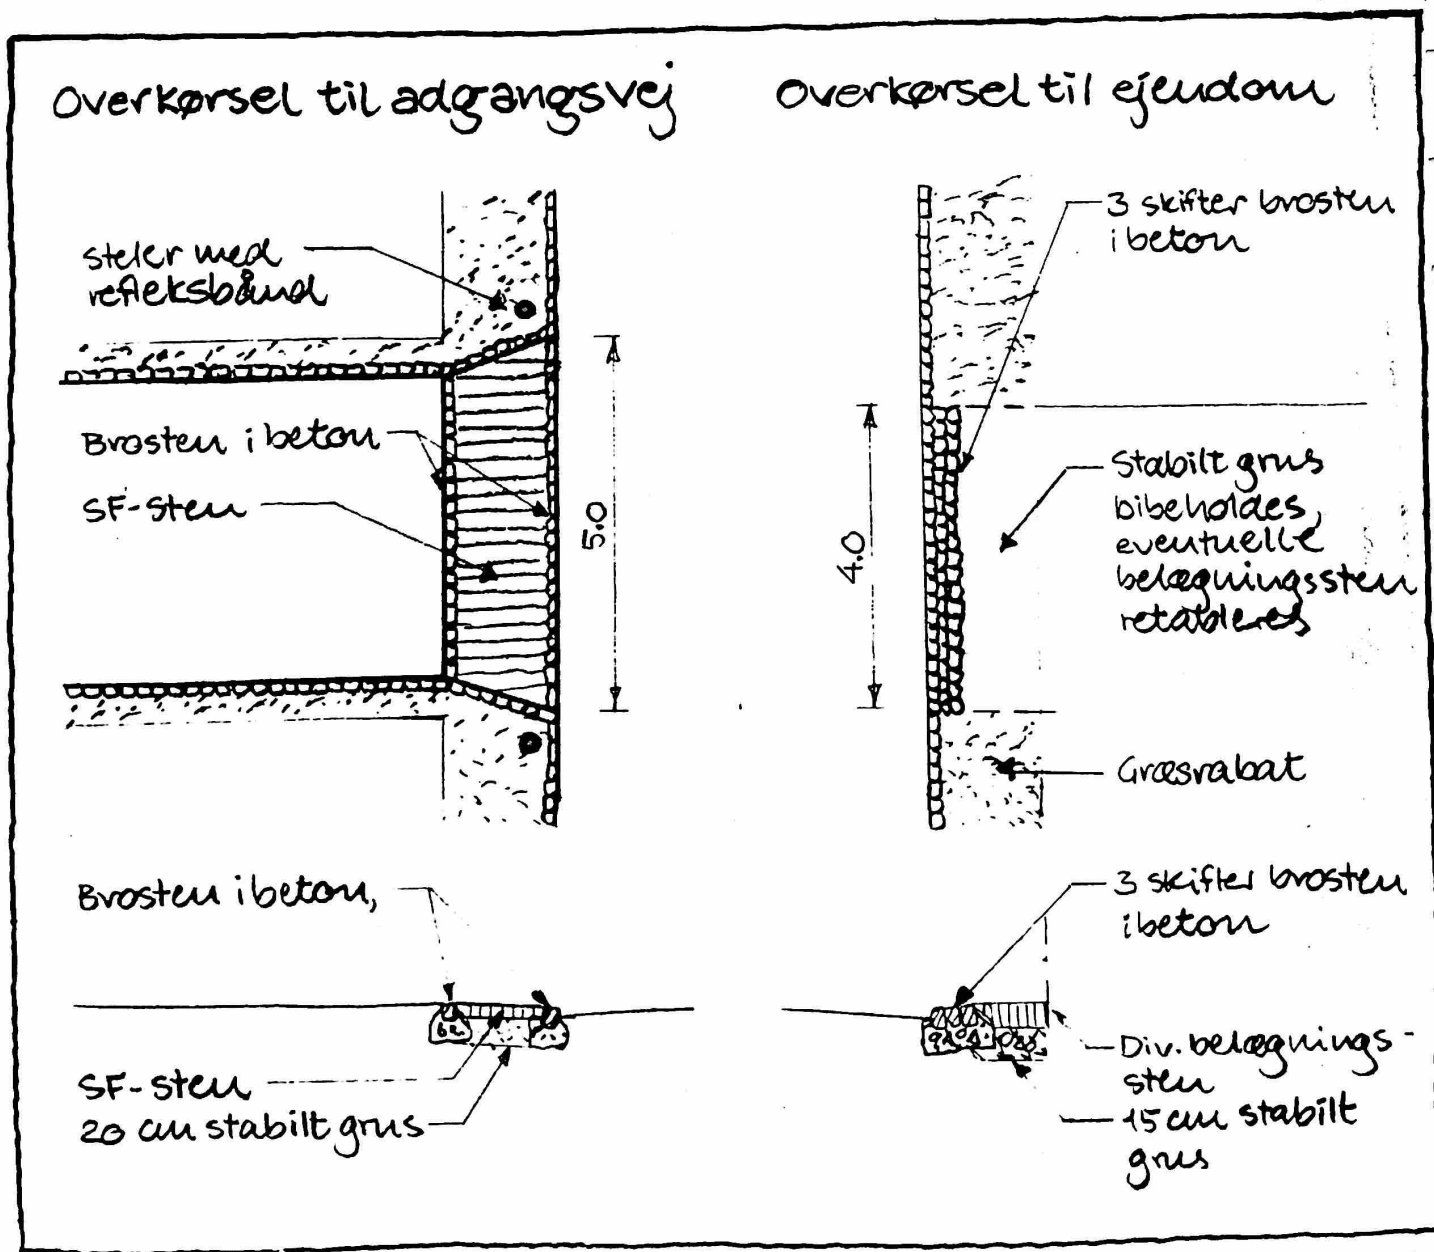 Overkørsel til adgangsvej
steler med
refleksbånd
Brosten i beton
SF-sten
5.0
Brosten i beton,
SF-sten
20 cm stabilt grus
Overkørsel til ejendom
3 skifter brosten
i beton
4.0
Stabilt grus
bibeholdes,
eventuelle
belægningssten
retableres
Græsrabat
3 skifter brosten
i beton
Div. belægnings-
sten
15 cm stabilt
grus